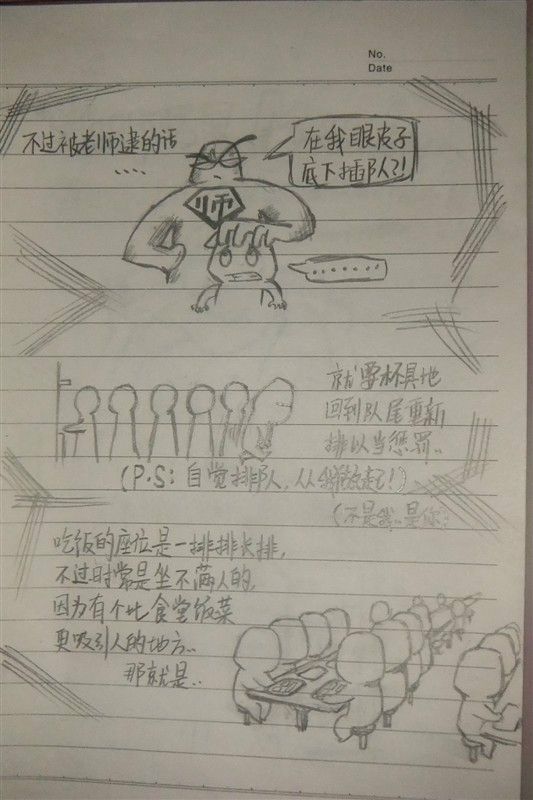 No.
Date
不过被老师逮的话
.....
在我眼皮子
底下插队?!
师
......
就要杯具地
回到队尾重新
排以当惩罚..
(P.S: 自觉排队,从我做起!)
(不是我..是你:
吃饭的座位是一排排长排,
不过时常是坐不满人的,
因为有个比食堂饭菜
更吸引人的地方..
那就是..